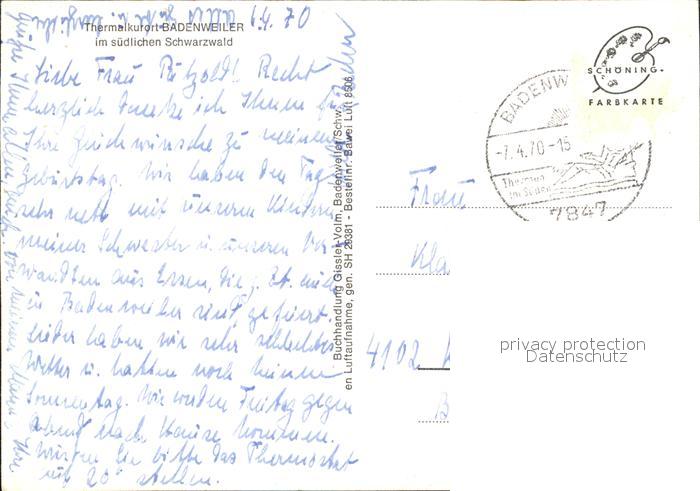 6.4.70
Thermalkurort BADENWEILER
im südlichen Schwarzwald
Liebe Frau Pätzold! Recht
herzlich danke ich Ihnen für
Ihre Glückwünsche zu meinem
Geburtstag. Wir haben den Tag
sehr nett mit unseren Kindern,
meiner Schwester u. unseren Ver-
wandten aus Essen, die z. Zt. auch
in Badenweiler sind, gefeiert.
Leider haben wir sehr schlechtes
Wetter u. hatten noch keinen
Sonnentag. Wir werden Freitag gegen
abend nach Hause kommen.
Würden Sie bitte das Thermostat
auf 20° stellen.
Buchhandlung Gissler-Volm, Badenweiler/Schw.
en Luftaufnahme, gen. SH 29381 - Bestellnr. Bawei Luft 8506
SCHÖNING-
FARBKARTE
BADENW
-7.4.70-15
Thermen
im Süden
7847
Frau
Kla
4102
B
privacy protection
Datenschutz